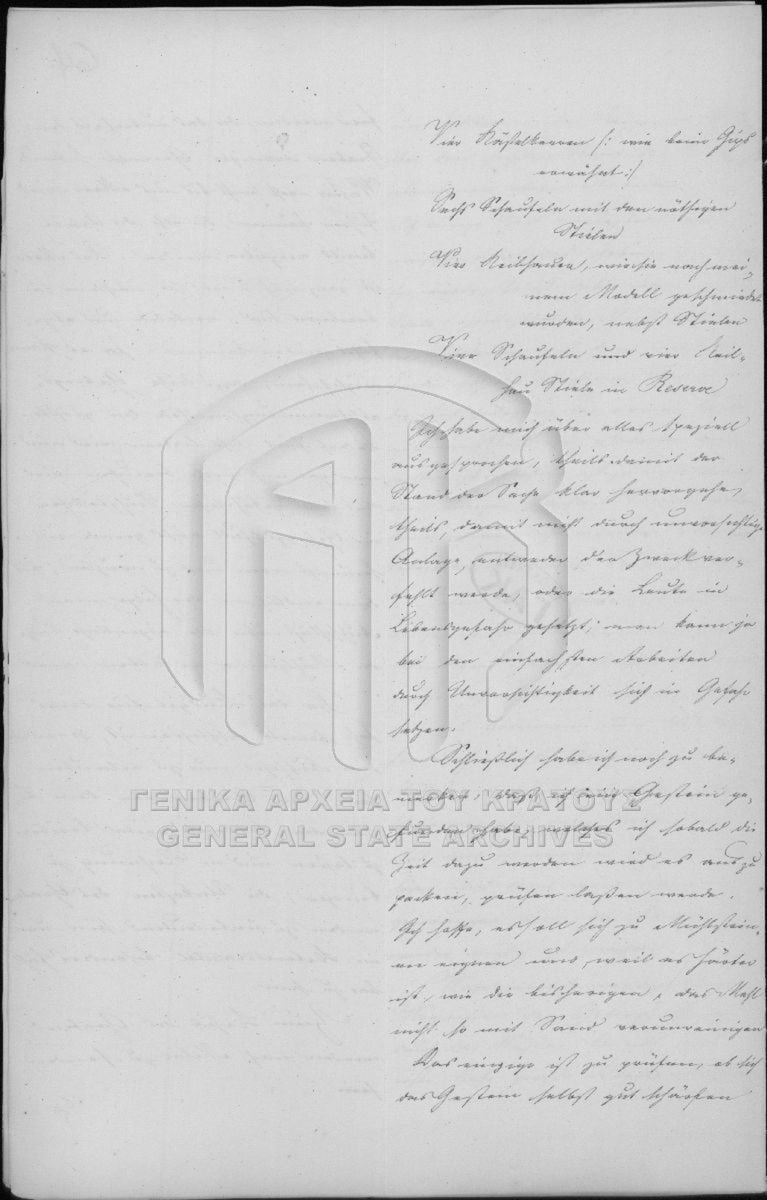 Vier Kästelkarren /: wie beim Gips
erwähnt :/
Sechs Schaufeln mit den nöthigen
Stielen
Vier Keilhauen, wie sie nach mei-
nem Modell geschmiedet
wurden, nebst Stielen
Vier Schaufeln und vier Keil-
hau Stiele in Reserve
Ich habe mich über alles speziell
ausgesprochen, theils damit der
Stand der Sache klar hervorgehe,
theils, damit nicht durch unvorsichtige
Anlage, entweder der Zweck ver-
fehlt werde, oder die Leute in
Lebensgefahr gesetzt; man kann ja
bei den einfachsten Arbeiten
durch Unvorsichtigkeit sich in Gefahr
setzen.
Schließlich habe ich noch zu be-
merken, daß ich ein Gestein ge-
funden habe, welches ich sobald die
Zeit dazu werden wird es auszu
packen, prüfen laßen werde.
Ich hoffe, es soll sich zu Mühlstein-
en eignen und, weil es härter
ist, wie die bisherigen, das Mehl
nicht so mit Sand verunreinigen
Das einzige ist zu prüfen, ob sich
das Gestein selbst gut schärfen
ΓΕΝΙΚΑ ΑΡΧΕΙΑ ΤΟΥ ΚΡΑΤΟΥΣ
GENERAL STATE ARCHIVES